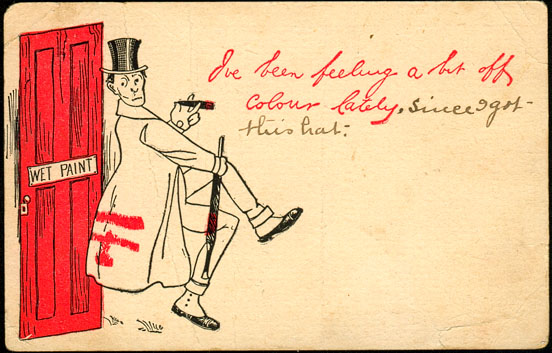 I've been feeling a bit off
colour lately, since I got
this hat.
WET PAINT